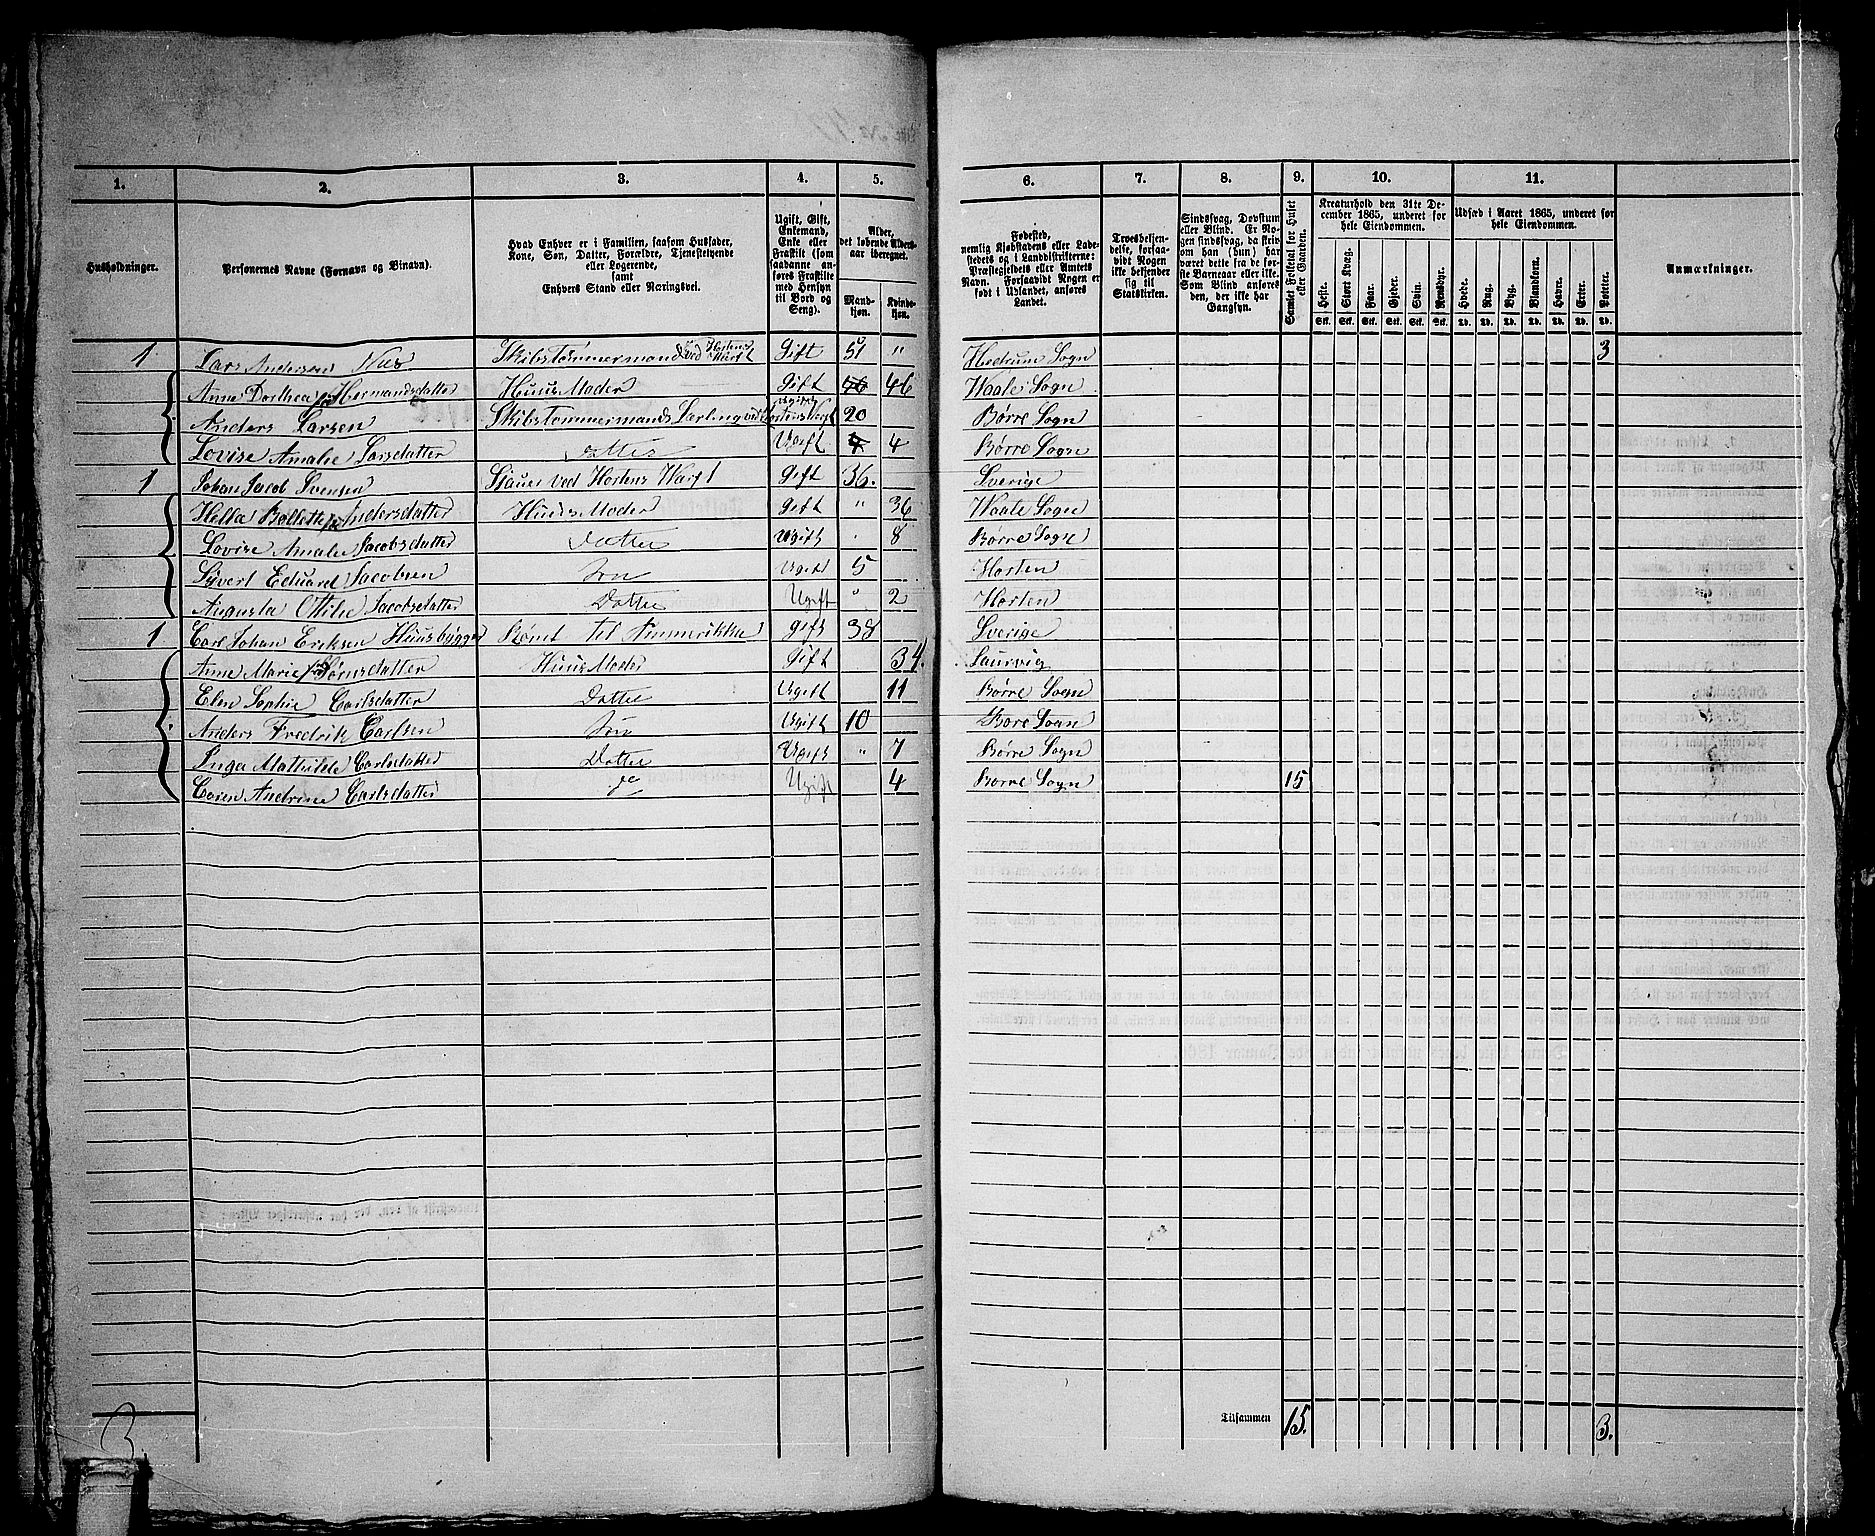 1. 2. 3. 4. 5. 6. 7. 8. 9. 10. 11.
Husholdninger.
Personernes Navne (Fornavn og Binavn).
Hvad Enhver er i Familien, saasom Husfader,
Kone, Søn, Datter, Forældre, Tjenestetyende
eller Logerende,
samt
Enhvers Stand eller Næringsvei.
Ugift, Gift,
Enkemand,
Enke eller
Fraskilt (som
saadanne an-
føres Fraskilte
med Hensyn
til Bord og
Seng).
Alder,
det løbende Alders-
aar iberegnet.
Mand-
kjøn.
Kvinde-
kjøn.
Fødested,
nemlig Kjøbstadens eller Lade-
stedets og i Landdistrikterne:
Præstegjeldets eller Amtets
Navn. Forsaavidt Nogen er
født i Udlandet, anføres
Landet.
Troesbekjen-
delse, forsaa-
vidt Nogen
ikke bekjender
sig til
Statskirken.
Sindssvag, Døvstum
eller Blind. Er No-
gen sindssvag, da skriv
om han (hun) har
været dette fra de før-
ste Barneaar eller ikke.
Som Blind anføres
den, der ikke har
Gangsyn.
Samlet Folketal for Huset
eller Gaarden.
Kreaturhold den 31te De-
cember 1865, underet for
hele Eiendommen.
Heste. Stort Kvæg. Faar. Gjeder. Svin. Rensdyr.
Stk. Stk. Stk. Stk. Stk. Stk.
Udsæd i Aaret 1865, underet for
hele Eiendommen.
Hvede. Rug. Byg. Blandkorn. Havre. Erter. Poteter.
Td. Td. Td. Td. Td. Td. Td.
Anmærkninger.
1 Lars Andersen Skibstømmermand ved Hortens Værft Gift 51 " Hedrum Sogn 3
Anne Dorthea Hermandsdatter Huus Moder Gift 46 46 Waale Sogn
Anders Larsen Skibstømmermands Lærling ved Hortens Værft Ugift 20 Børre Sogn
Lovise Amalie Larsdatter Datter Ugift 4 4 Børre Sogn
1 Johan Jacob Svensen Sjauer ved Hortens Værft Gift 36. Sverige
Helta Bollette Andersdatter Huus Moder Gift " 36 Waale Sogn
Lovise Amalie Jacobsdatter Datter Ugift . 8 Børre Sogn
Syvert Eduard Jacobsen Søn Ugift 5 Horten
Augusta Ottilie Jacobsdatter Datter Ugift " 2 Horten
1 Carl Johan Eriksen Huusbygger Rømt til Ammerikka Gift 38 Sverige
Anne Marie Sørnsdatter Huus Moder Gift 34. Laurvig
Elen Sophie Carlsdatter Datter Ugift 11 Børre Sogn
Anders Fredrik Carlsen Søn Ugift 10 Børe Sogn
Inga Mathilde Carlsdatter Datter Ugift " 7 Børre Sogn
Caren Andrine Carlsdatter do Ugift 4 Børre Sogn 15
3.
Tilsammen 15. 3.